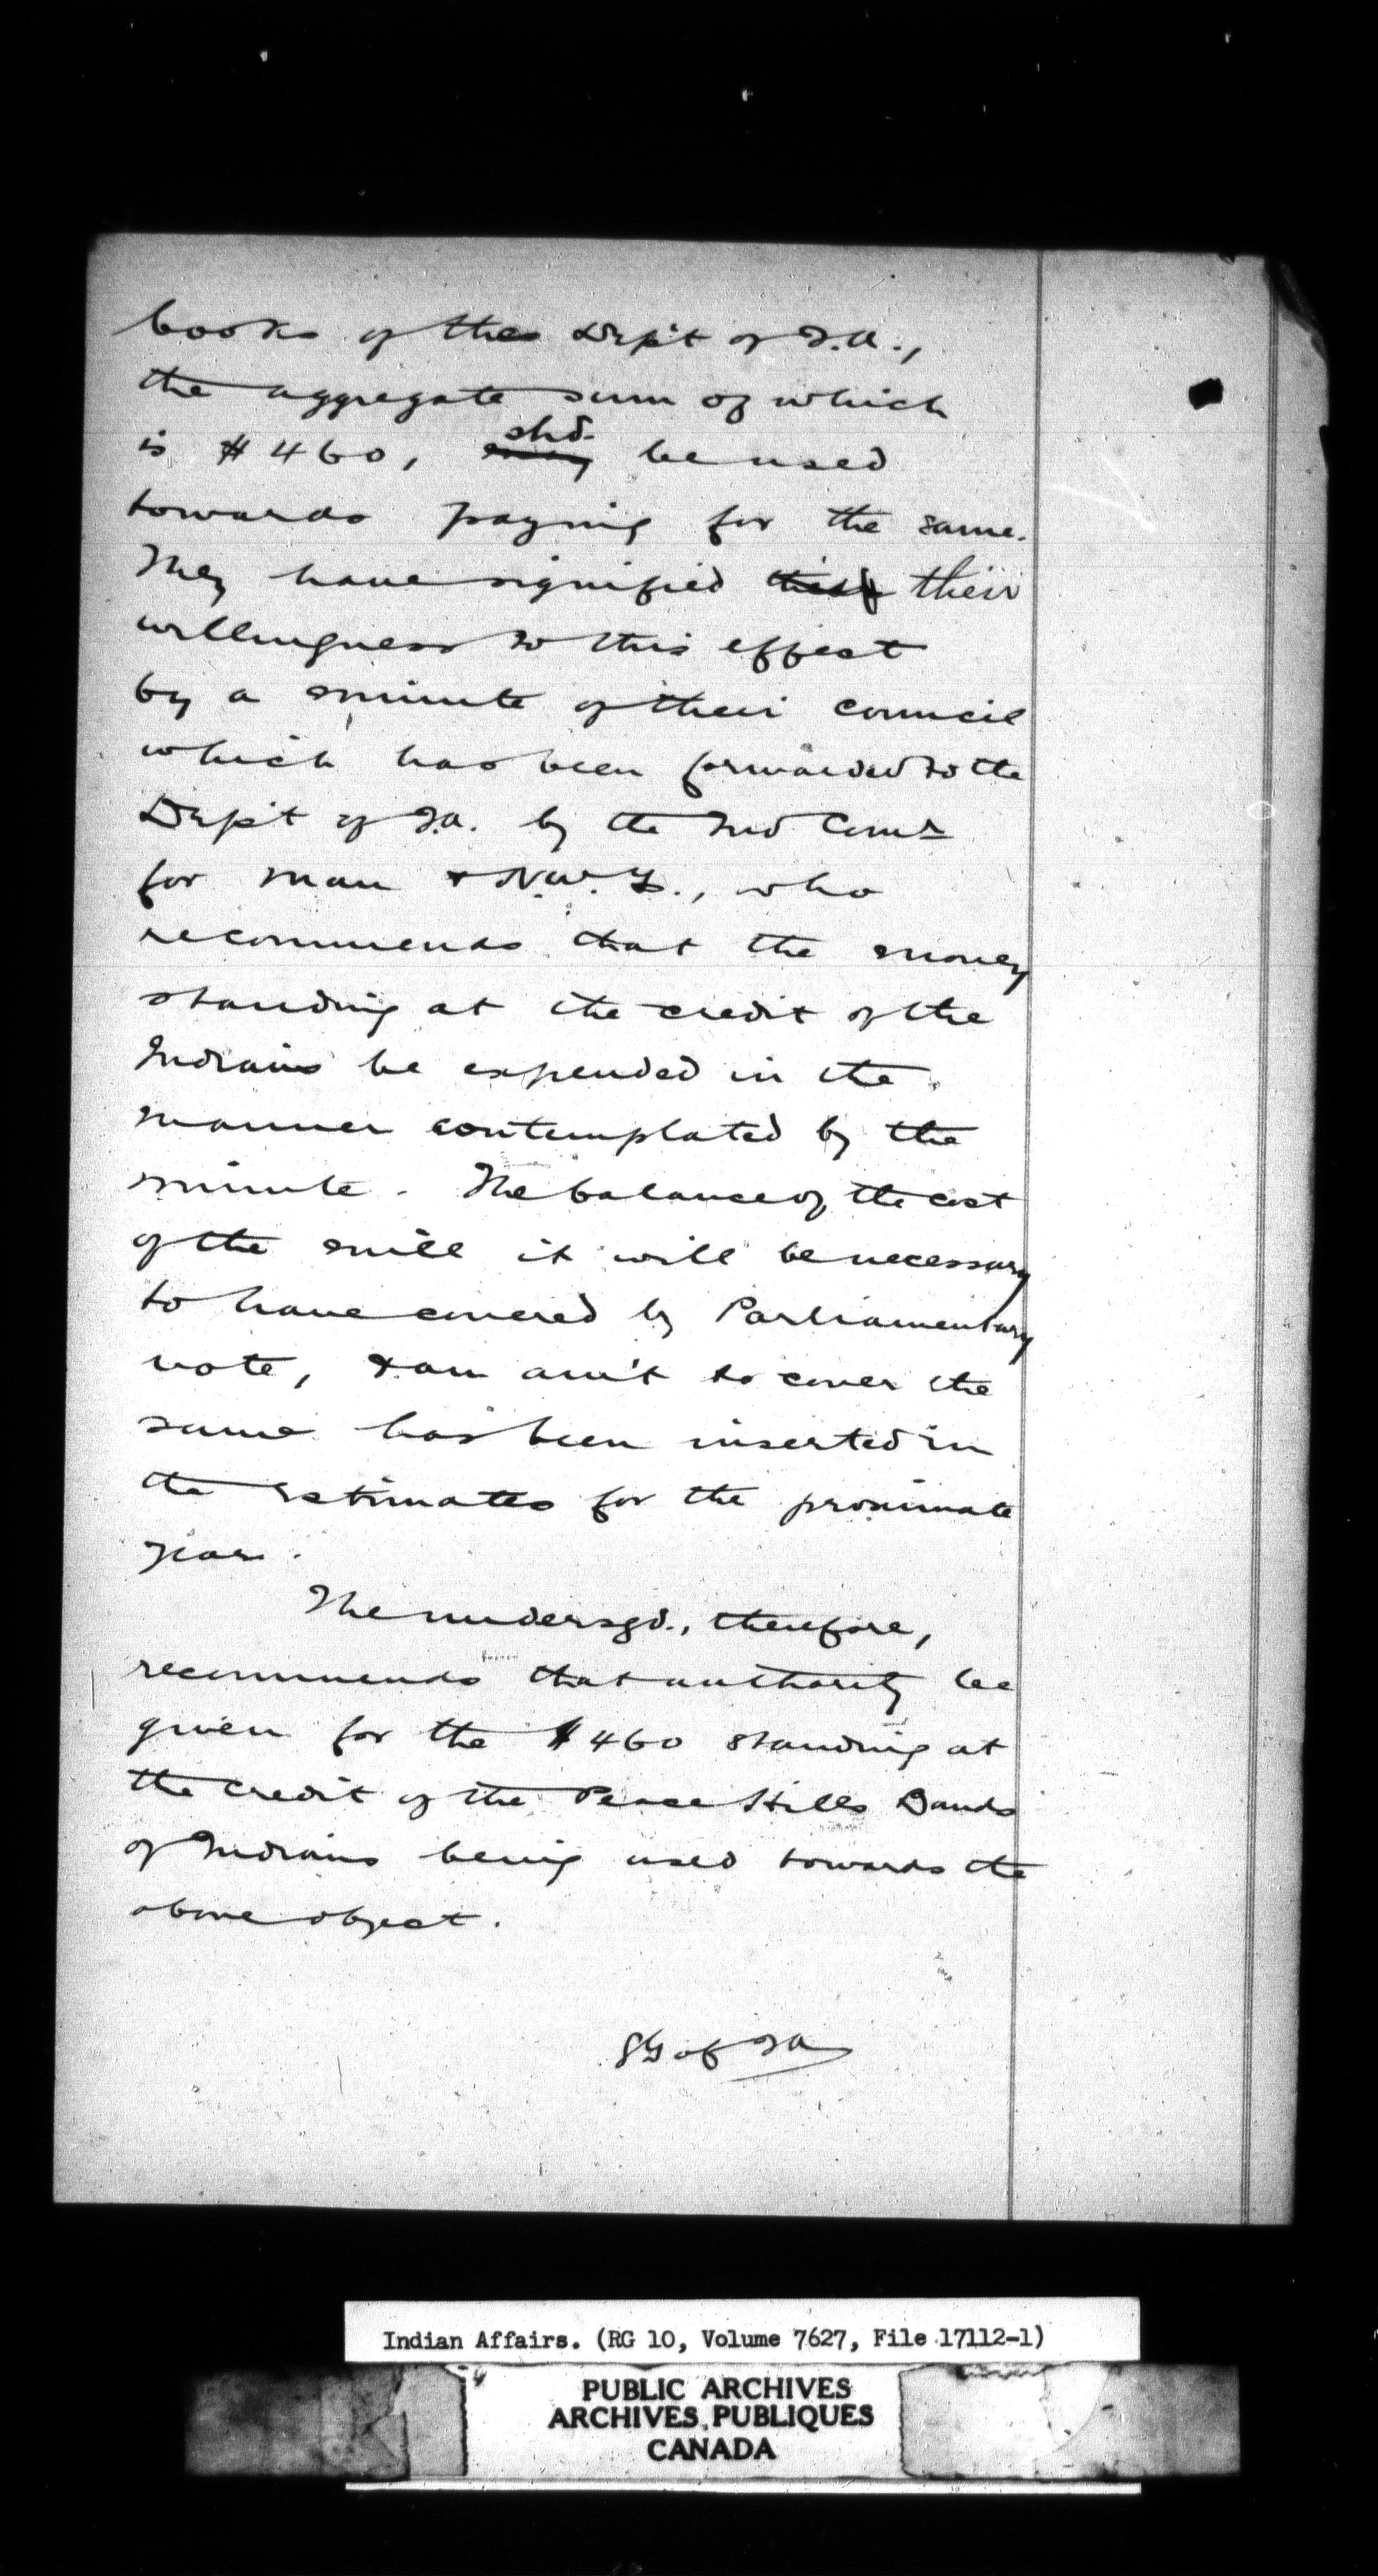 books of the Dep't of I.A.,
the aggregate sum of which
is $460, shd. be used
towards paying for the same.
They have signified their
willingness to this effect
by a minute of their council
which has been forwarded to the
Dep't of I.A. by the Ind Comr
for Man & N.W.T., who
recommends that the money
standing at the credit of the
Indians be expended in the
manner contemplated by the
minute. The balance of the cost
of the mill it will be necessary
to have covered by Parliamentary
vote, & an am't to cover the
same has been inserted in
the Estimates for the proximate
year.
The undersgd., therefore,
recommends that authority be
given for the $460 standing at
the credit of the Peace Hills Bands
of Indians being used towards the
above object.
SG of IA
Indian Affairs. (RG 10, Volume 7627, File 17112-1)
PUBLIC ARCHIVES
ARCHIVES PUBLIQUES
CANADA